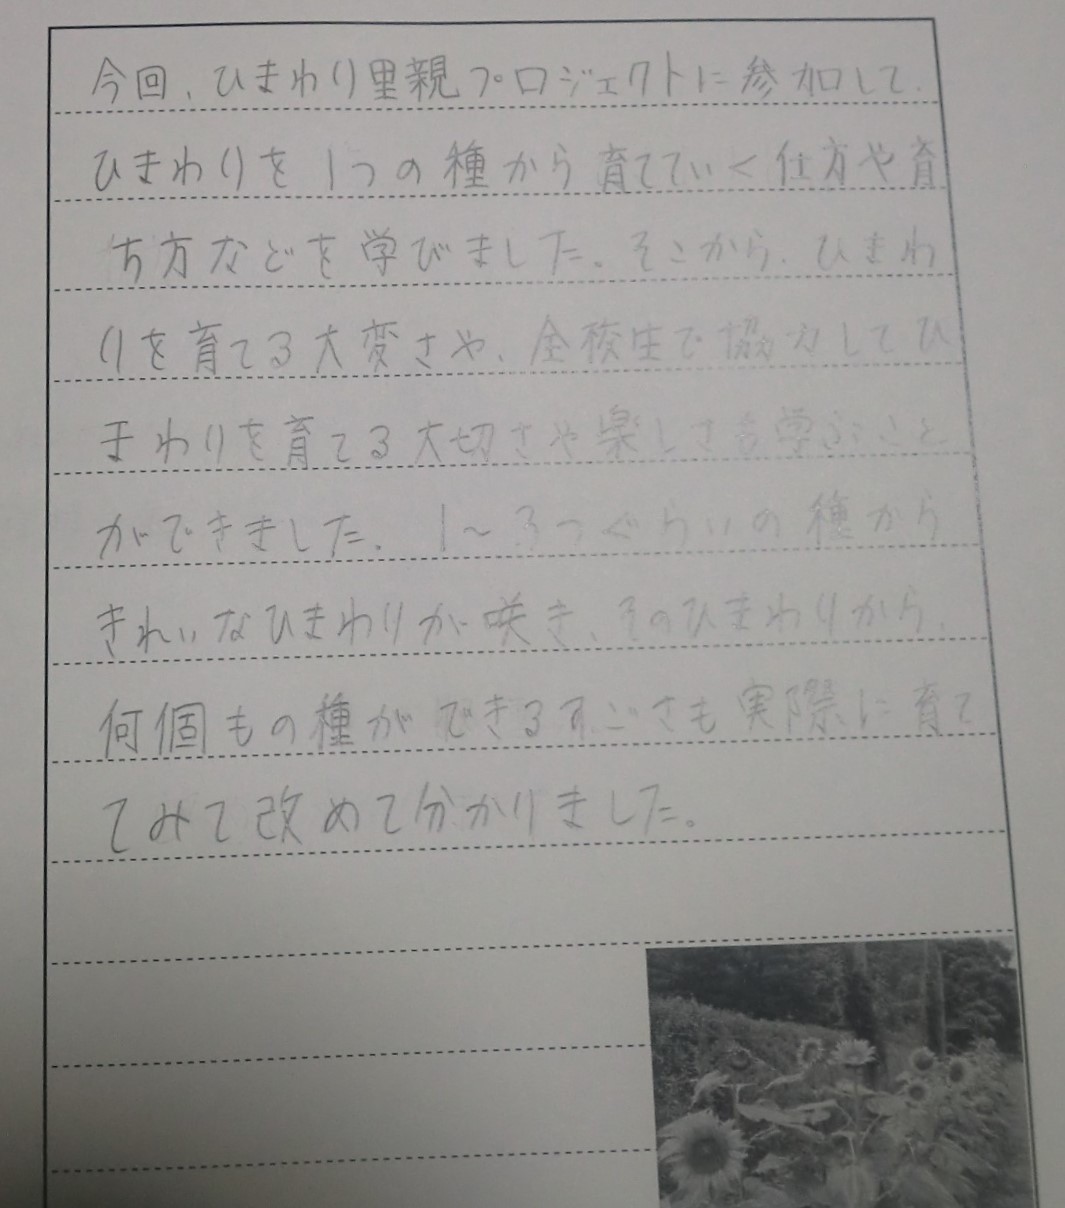 今回、ひまわり里親プロジェクトに参加して、
ひまわりを1つの種から育てていく仕方や育
ち方などを学びました。そこから、ひまわ
りを育てる大変さや、全校生で協力してひ
まわりを育てる大切さや楽しさも学ぶこと
ができました。1〜3つぐらいの種から
きれいなひまわりが咲き、そのひまわりから、
何個もの種ができるすごさも実際に育て
てみて改めて分かりました。